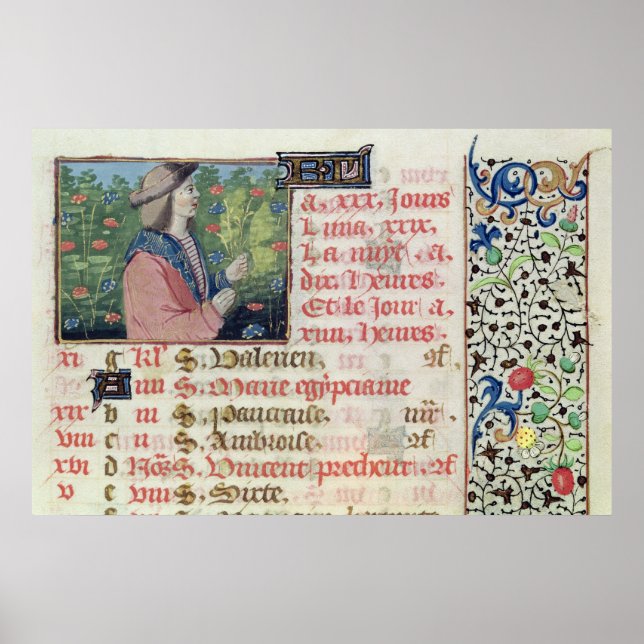 a, xxx, Jours
Luna, xxix,
La nuyt, a,
dix, heures,
Et le Jour a,
xiiii, heures,
xi g kl S, Valerien, 
A iiii S, Marie egypciame
xix b iii S, Pancraise,
viii c ii S, Ambroise,
xvi d S, Vincent precheur
v e viii S, Sixte,